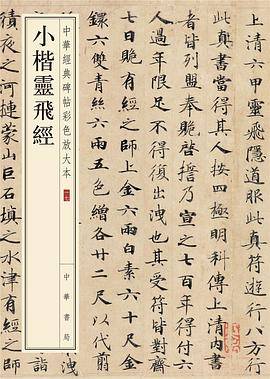 上清六甲靈飛隱道服此真符遊行八方行
此真書當得其人按四極明科傳上清內書
者皆列盟奉貺啓誓乃宣之七百年得付六
人過年限足不得復出洩也其受符皆對齋
七日貺有經之師上金六兩白素六十尺金
鐶六雙青絲六兩五色繒各廿二尺以代翦
中華經典碑帖彩色放大本
中華書局
小楷靈飛經
洩
積夜之河揵蒙山巨石填之水津有經